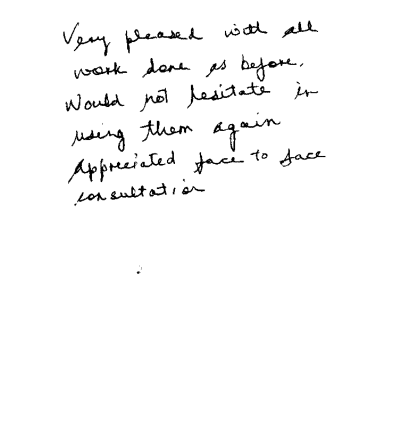 Very pleased with all
work done as before.
Would not hesitate in
using them again
Appreciated face to face
consultation